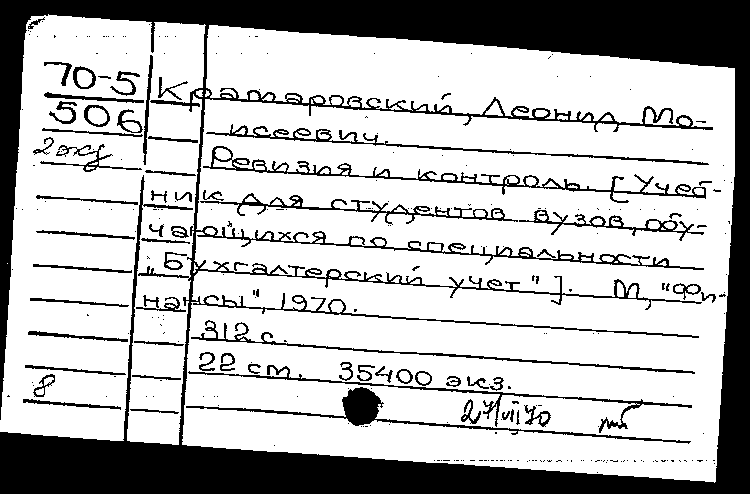 70-5 Крамаровский, Леонид Мо-
506 исеевич.
2 экз Ревизия и контроль. [Учеб-
ник для студентов вузов, обу-
чающихся по специальности
"Бухгалтерский учет"]. М, "Фи-
нансы", 1970.
312 с.
22 см. 35400 экз.
8 27/VII 70